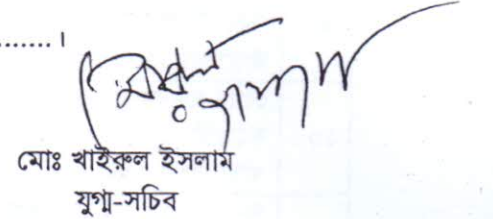 ........।
মোঃ খাইরুল ইসলাম
যুগ্ম-সচিব